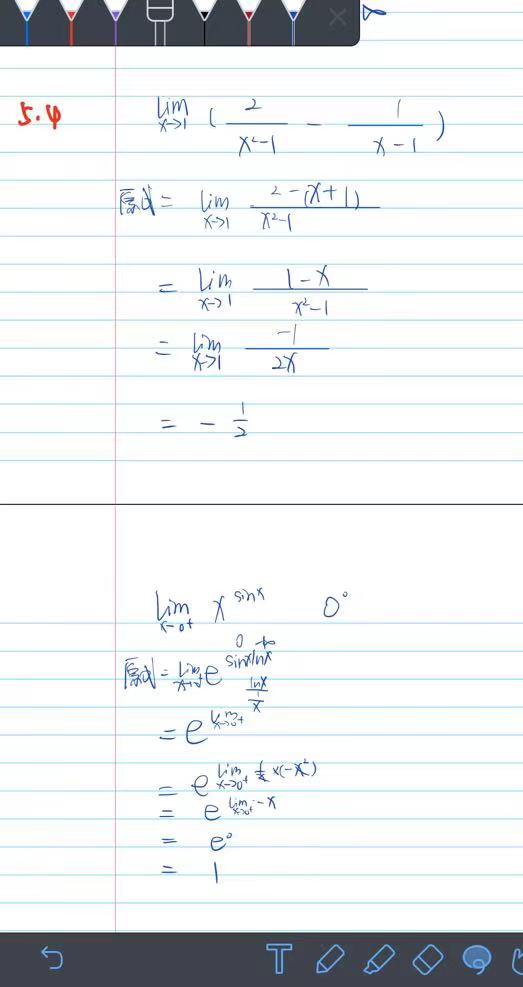 5.4
lim x→1 ( 2/(x²-1) - 1/(x-1) )
原式 = lim x→1 (2-(x+1))/(x²-1)
= lim x→1 (1-x)/(x²-1)
= lim x→1 -1/(2x)
= - 1/2
lim x→0+ x^(sinx) 0°
0 -∞
原式 = lim x→0+ e^(sinxlnx)
= e^(lim x→0+ lnx/(1/x))
= e^(lim x→0+ 1/x ×(-x²))
= e^(lim x→0+ -x)
= e°
= 1
T